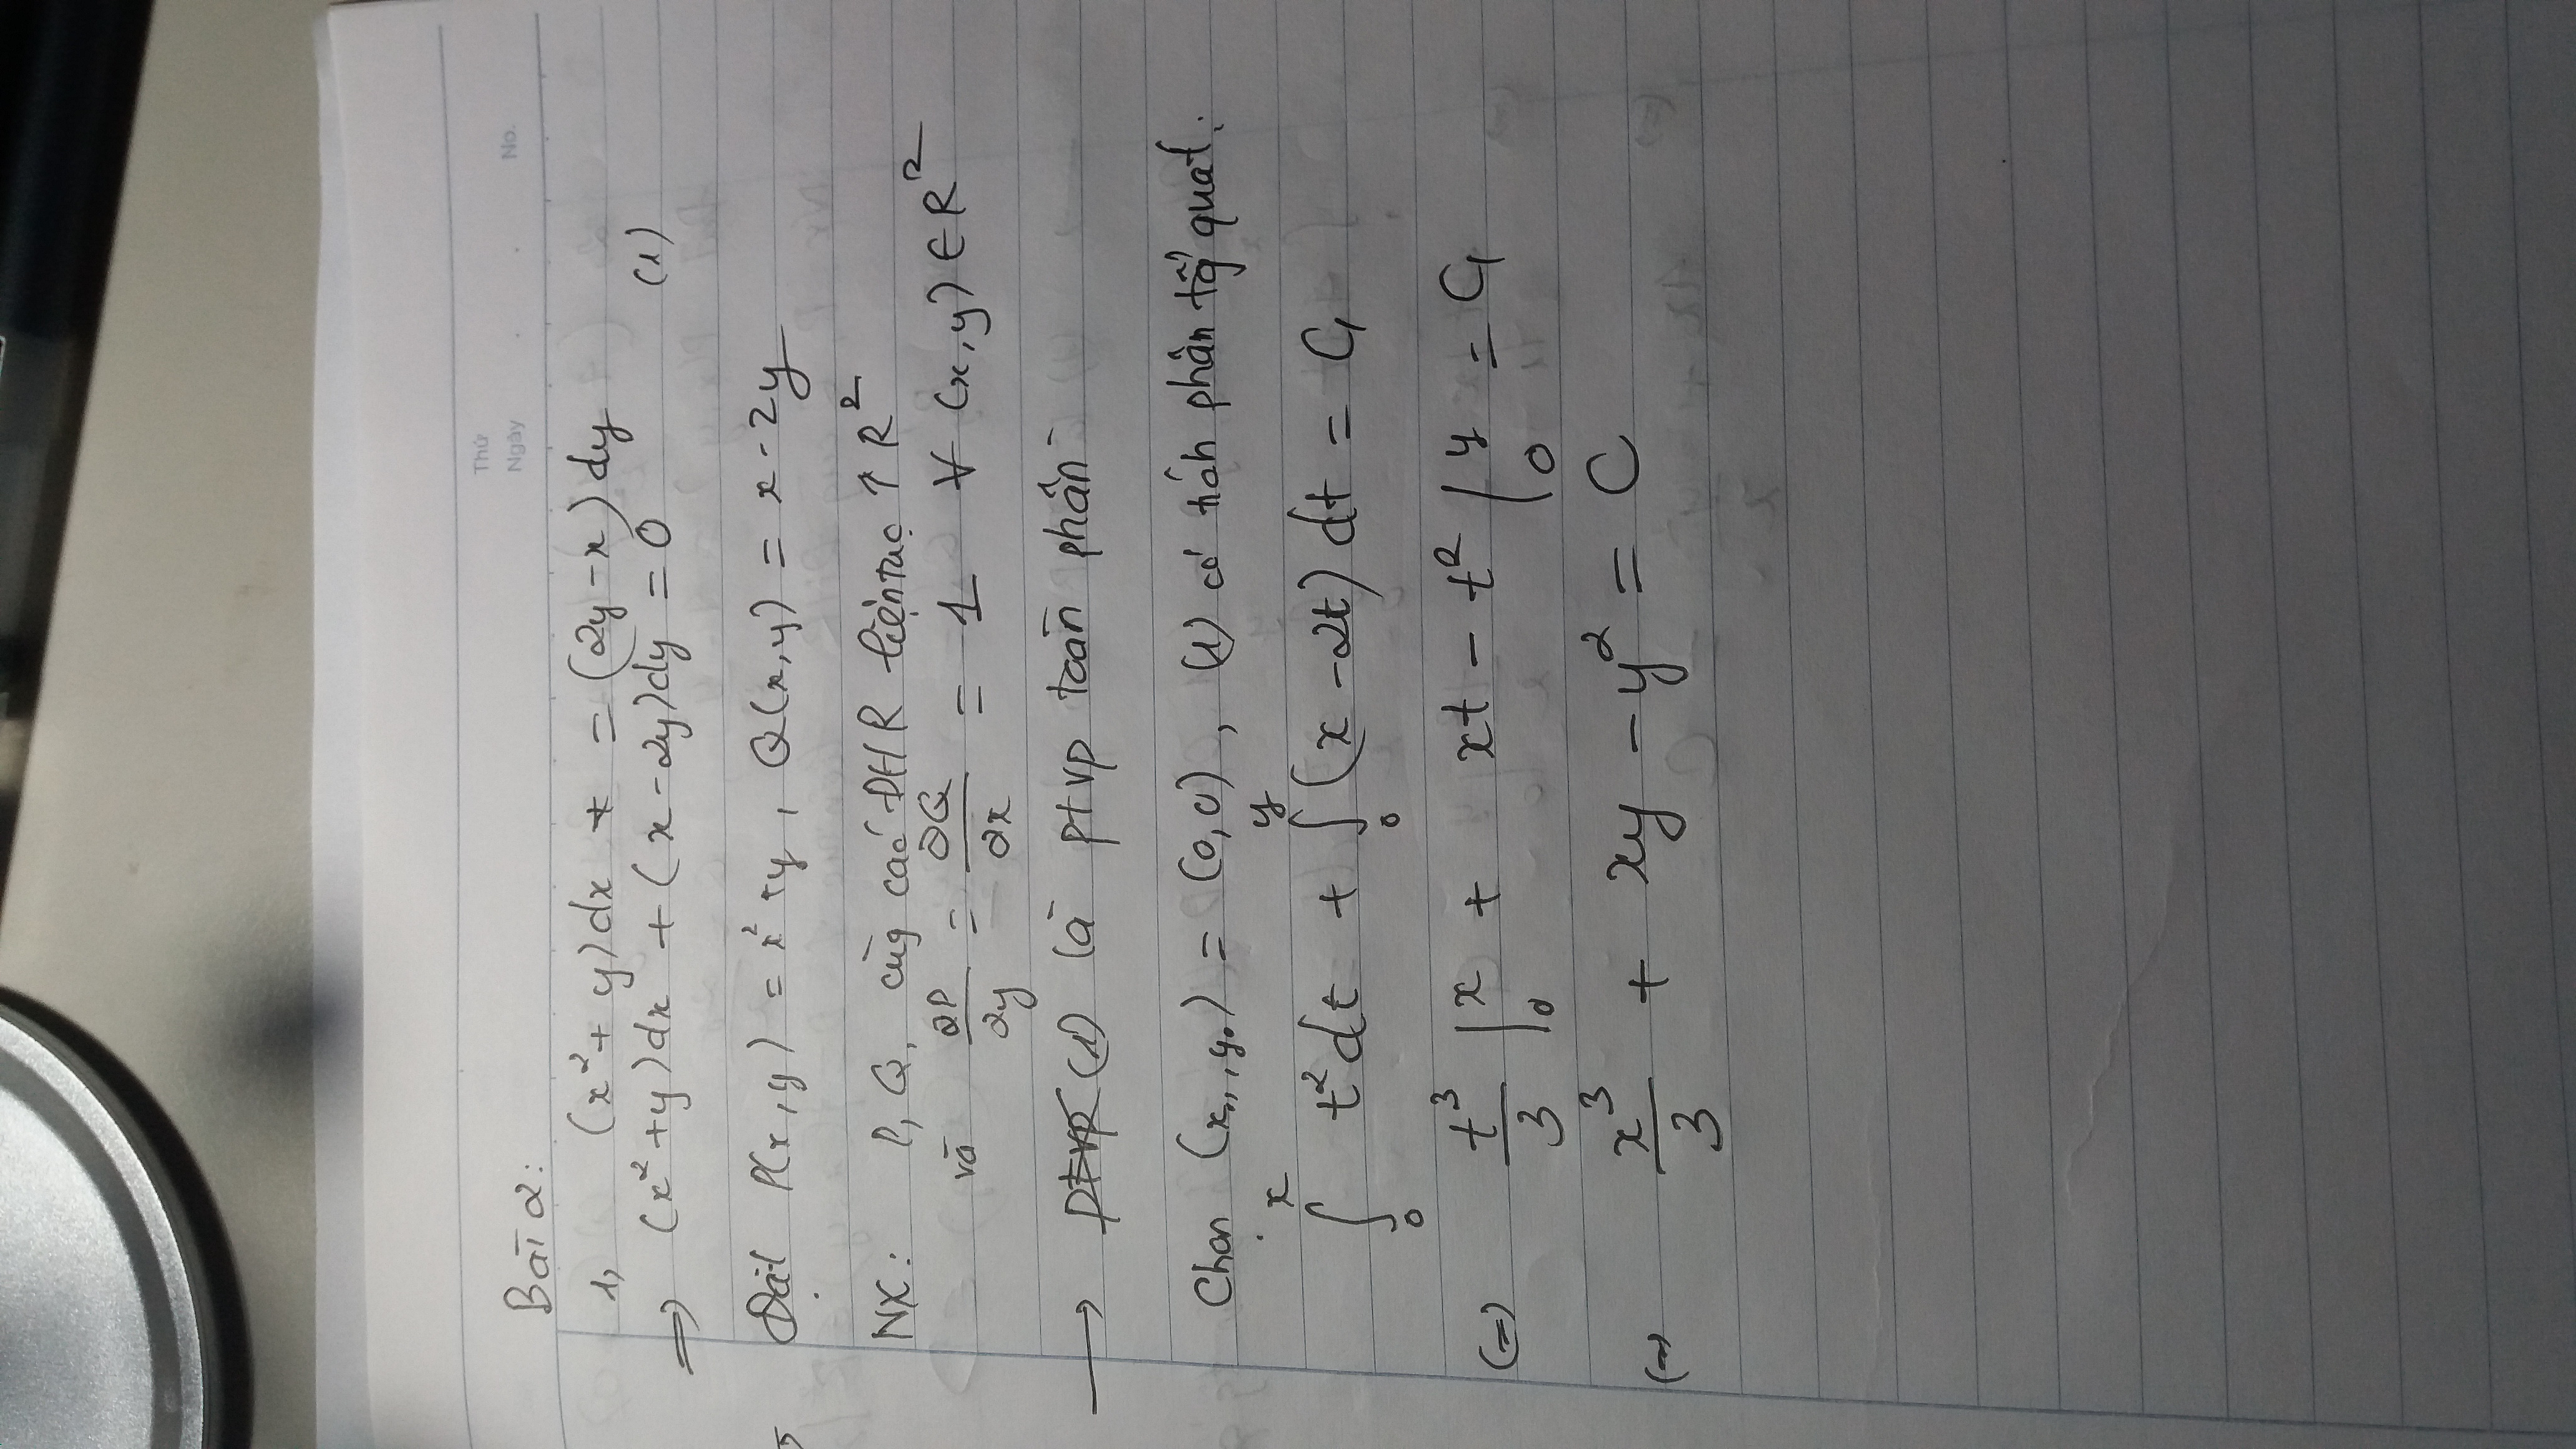 Thứ
Ngày No.
Bài 2:
1, (x² + y)dx = (2y - x)dy
=> (x² + y)dx + (x - 2y)dy = 0 (1)
Đặt P(x,y) = x² + y, Q(x,y) = x - 2y
NX: P, Q, cùg các ĐHR liên tục ↑ R²
và ∂P/∂y = ∂Q/∂x = 1 ∀ (x,y) ∈ R²
→ (1) là ptvp toàn phần
Chọn (x₀, y₀) = (0,0), (1) có tích phân tổg quát:
∫₀ˣ t² dt + ∫₀ʸ (x - 2t) dt = C₁
(=) t³/3 |₀ˣ + xt - t² |₀ʸ = C₁
(=) x³/3 + xy - y² = C